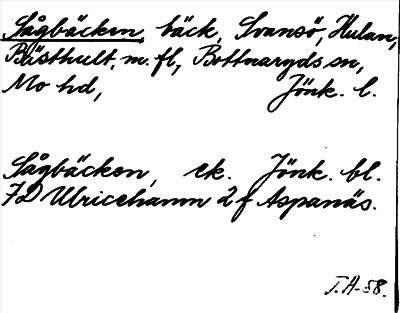 Sågbäcken, bäck, Svansö, Hulan,
Båsthult, m. fl, Bottnaryds sn,
Mo hd, Jönk. l.
Sågbäcken, ek. Jönk. bl.
7D Ulricehamn 2 f Aspanäs.
T. H-58.